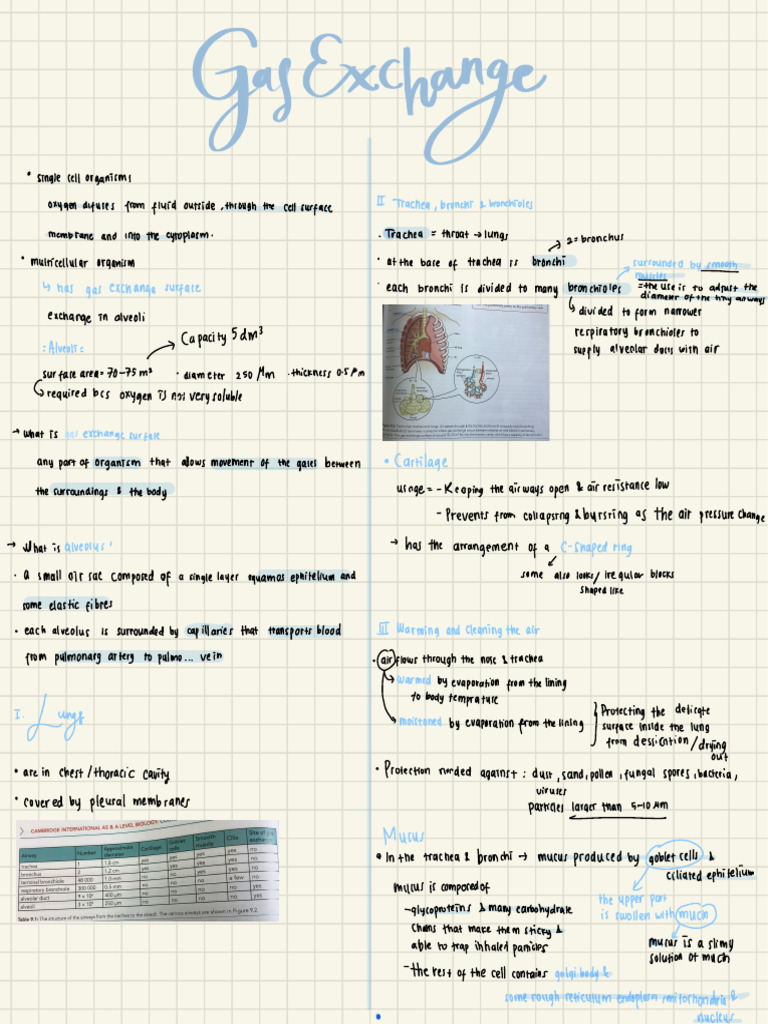 Gas Exchange
• single cell organisms
oxygen difuses from fluid outside, through the cell surface
membrane and into the cytoplasm.
• multicellular organism
↳ has gas exchange surface
exchange in alveoli
= Alveoli =
Capacity 5 dm³
surface area = 70-75 m² · diameter 250 μm · thickness 0.5 μm
required bcs oxygen is not very soluble
→ What is gas exchange surface
any part of organism that allows movement of the gases between
the surroundings & the body
→ What is alveolus?
• A small air sac composed of a single layer squamos ephitelium and
some elastic fibres
• each alveolus is surrounded by capillaries that transports blood
from pulmonary artery to pulmo... vein
I. Lungs
• are in chest / thoracic cavity
• covered by pleural membranes
CAMBRIDGE INTERNATIONAL AS & A LEVEL BIOLOGY:
Airway Number Approximate diameter Cartilage Goblet cells Smooth muscle Cilia Site of gas exchange
trachea 1 1.8 cm yes yes yes yes no
bronchus 2 1.2 cm yes yes yes yes no
terminal bronchiole 48 000 1.0 mm no no yes yes no
respiratory bronchiole 300 000 0.5 mm no no yes a few no
alveolar duct 9 × 10⁶ 400 μm no no no no yes
alveoli 3 × 10⁸ 250 μm no no no no yes
Table 9.1: The structure of the airways from the trachea to the alveoli. The various airways are shown in Figure 9.2.
II Trachea, bronchi & bronchioles
· Trachea = throat → lungs
2 = bronchus
• at the base of trachea is bronchi
surrounded by smooth
muscles
• each bronchi is divided to many bronchioles
= the use is to adjust the
diameter of the tiny airways
divided to form narrower
respiratory bronchioles to
supply alveolar ducts with air
• Cartilage
usage = - Keeping the airways open & air resistance low
- Prevents from collapsing & bursting as the air pressure change
→ has the arrangement of a C-shaped ring
some also looks / irregular blocks
shaped like
III Warming and Cleaning the air
• air flows through the nose & trachea
→ warmed by evaporation from the lining
to body temprature
→ moistoned by evaporation from the lining
Protecting the delicate
surface inside the lung
from dessication / drying
out
• Protection needed against : dust, sand, pollen, fungal spores, bacteria,
viruses
particles larger than 5-10 μm
Mucus
• In the trachea & bronchi → mucus produced by goblet cells &
ciliated ephitelium
the upper part
is swollen with much
mucus is a slimy
solution of much
mucus is compored of
- glycoproteins & many carbohydrate
chains that make them sticky &
able to trap inhaled particles
- the rest of the cell contains golgi body &
some rough reticulum endoplasm, mitochondria &
nucleus